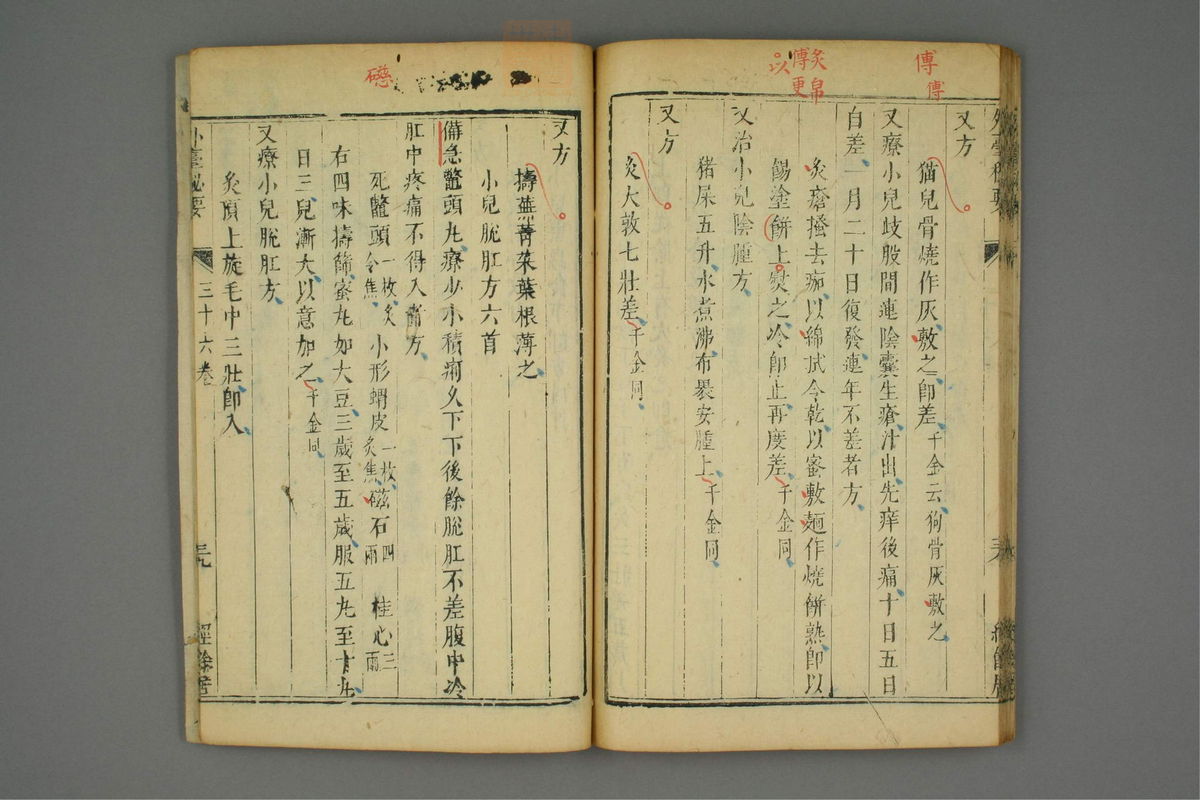 傅
傅
灸帛
傅更
以
又方
猫兒骨燒作灰敷之即差千金云狗骨灰敷之
又療小兒歧股間連陰囊生瘡汁出先痒後痛十日五日
自差一月二十日復發連年不差者方
灸瘡搔去痂以綿拭令乾以蜜敷麵作燒餅熟即以
餳塗餅上熨之冷即止再度差千金同
又治小兒陰腫方
猪屎五升水煮沸布裹安腫上千金同
又方
灸大敦七壯差千金同
礠
又方
擣蕪菁菜葉根薄之
小兒脫肛方六首
備急鼈頭丸療少小積痢久下下後餘脫肛不差腹中冷
肛中疼痛不得入者方
死鼈頭一枚灸令焦 小形蝟皮一枚灸焦 磁石四兩 桂心三兩
右四味擣篩蜜丸如大豆三歲至五歲服五丸至十丸
日三兒漸大以意加之千金同
又療小兒脫肛方
灸頂上旋毛中三壯即入
外臺秘要 三十六卷 三九 經餘居